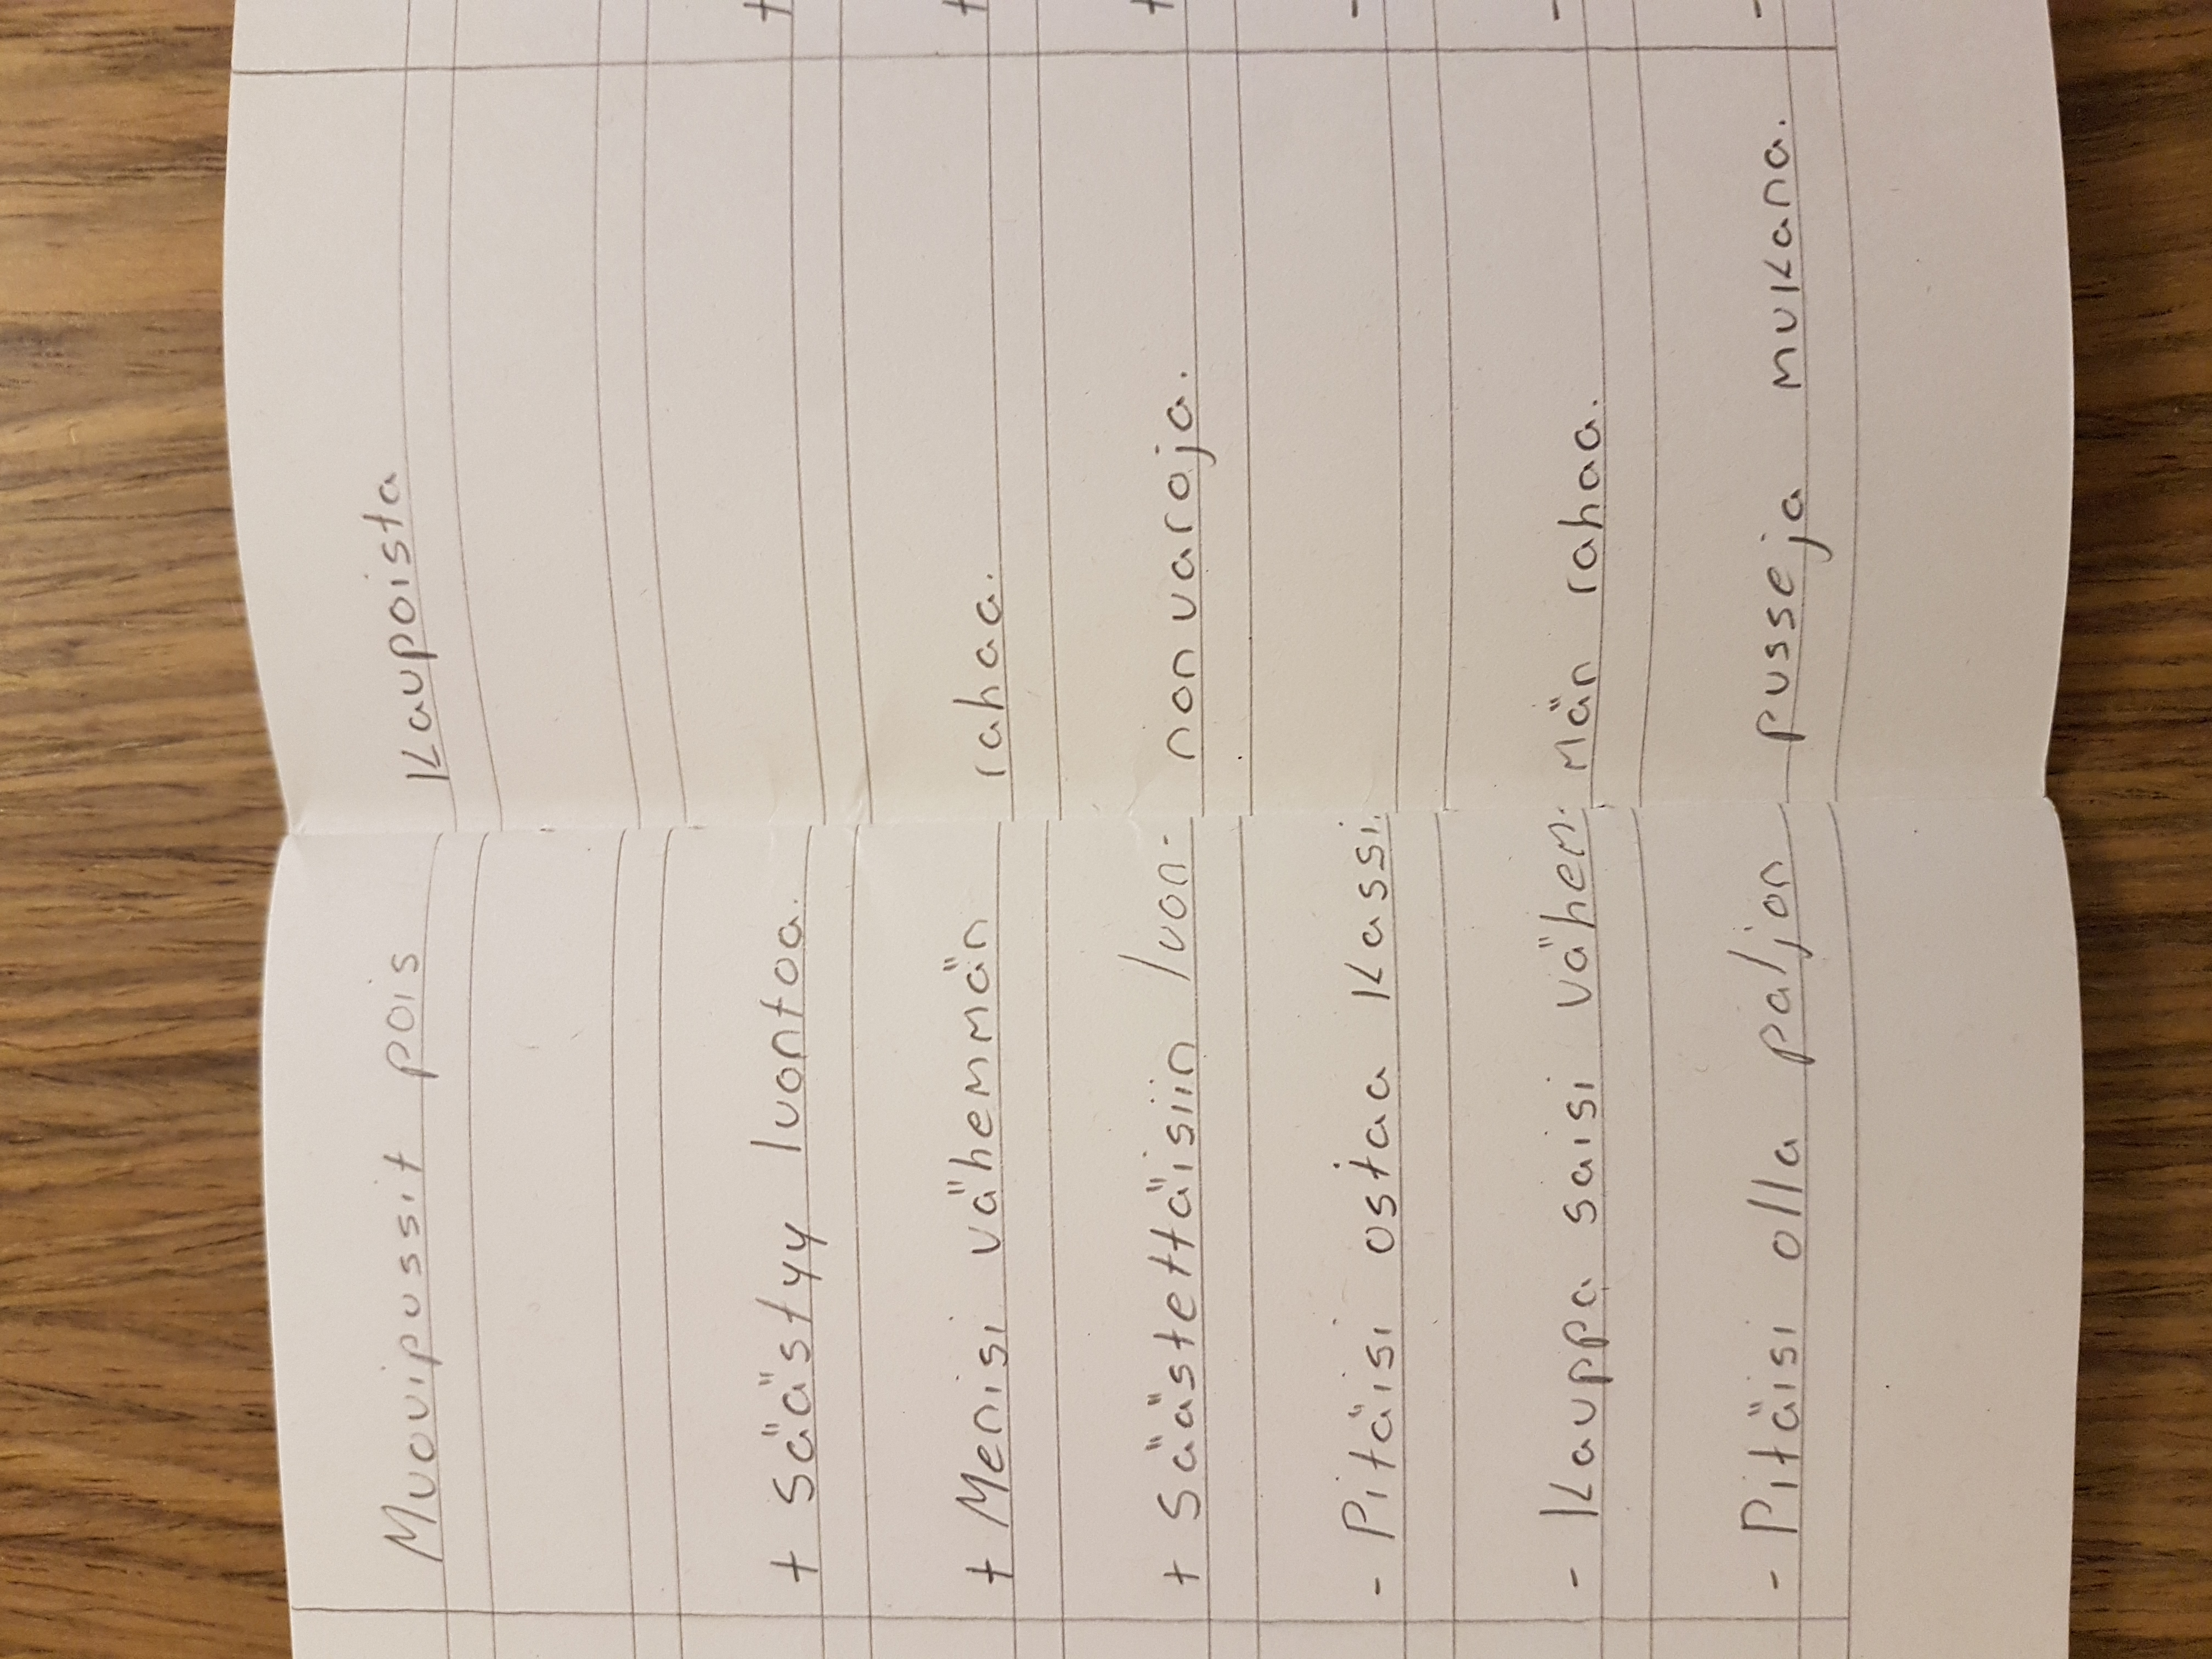 Muovipussit pois kaupoista
+ Säästyy luontoa.
+ Menisi vähemmän rahaa.
+ Säästettäisiin luon- nonvaroja.
- Pitäisi ostaa kassi.
- Kauppa saisi vähem- män rahaa.
- Pitäisi olla paljon pusseja mukana.